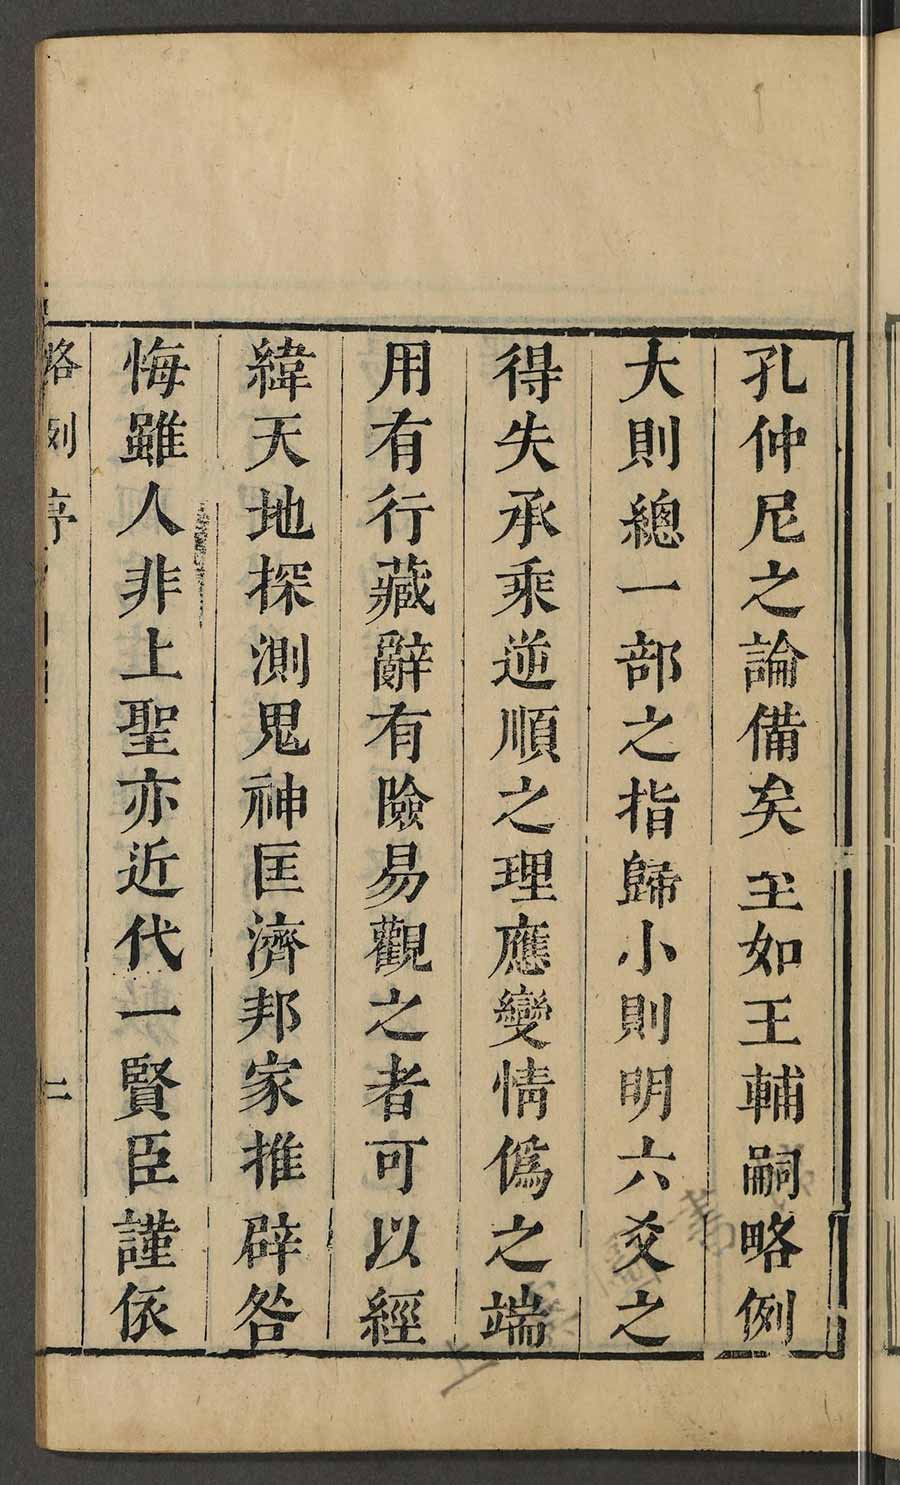 孔仲尼之論備矣至如王輔嗣略例
大則總一部之指歸小則明六爻之
得失承乘逆順之理應變情僞之端
用有行藏辭有險易觀之者可以經
緯天地探測鬼神匡濟邦家推辟咎
悔雖人非上聖亦近代一賢臣謹依
略例序
二